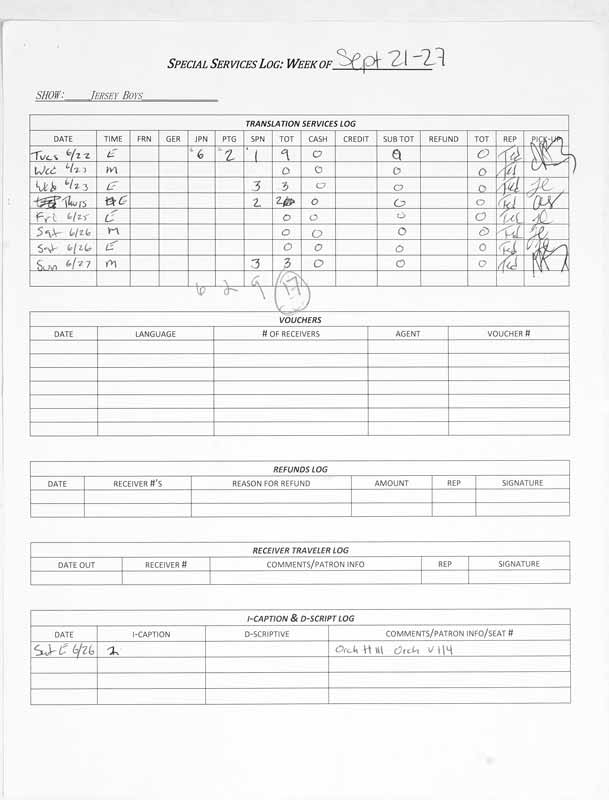 SPECIAL SERVICES LOG: WEEK OF Sept 21-27
SHOW: JERSEY BOYS
TRANSLATION SERVICES LOG
DATE TIME FRN GER JPN PTG SPN TOT CASH CREDIT SUB TOT REFUND TOT REP PICK-UP
Tues 6/22 E 6 2 1 9 0 9 0 Ted
Wed 6/23 M 0 0 0 0 Ted
Wed 6/23 E 3 3 0 0 0 Ted
Thurs E 2 2 0 0 0 Ted
Fri 6/25 E 0 0 0 0 Ted
Sat 6/26 M 0 0 0 0 Ted
Sat 6/26 E 0 0 0 0 Ted
Sun 6/27 M 3 3 0 0 0 Ted
6 2 9 17
VOUCHERS
DATE LANGUAGE # OF RECEIVERS AGENT VOUCHER #
REFUNDS LOG
DATE RECEIVER #'S REASON FOR REFUND AMOUNT REP SIGNATURE
RECEIVER TRAVELER LOG
DATE OUT RECEIVER # COMMENTS/PATRON INFO REP SIGNATURE
I-CAPTION & D-SCRIPT LOG
DATE I-CAPTION D-SCRIPTIVE COMMENTS/PATRON INFO/SEAT #
Sat E 6/26 2 Orch H111 Orch V114